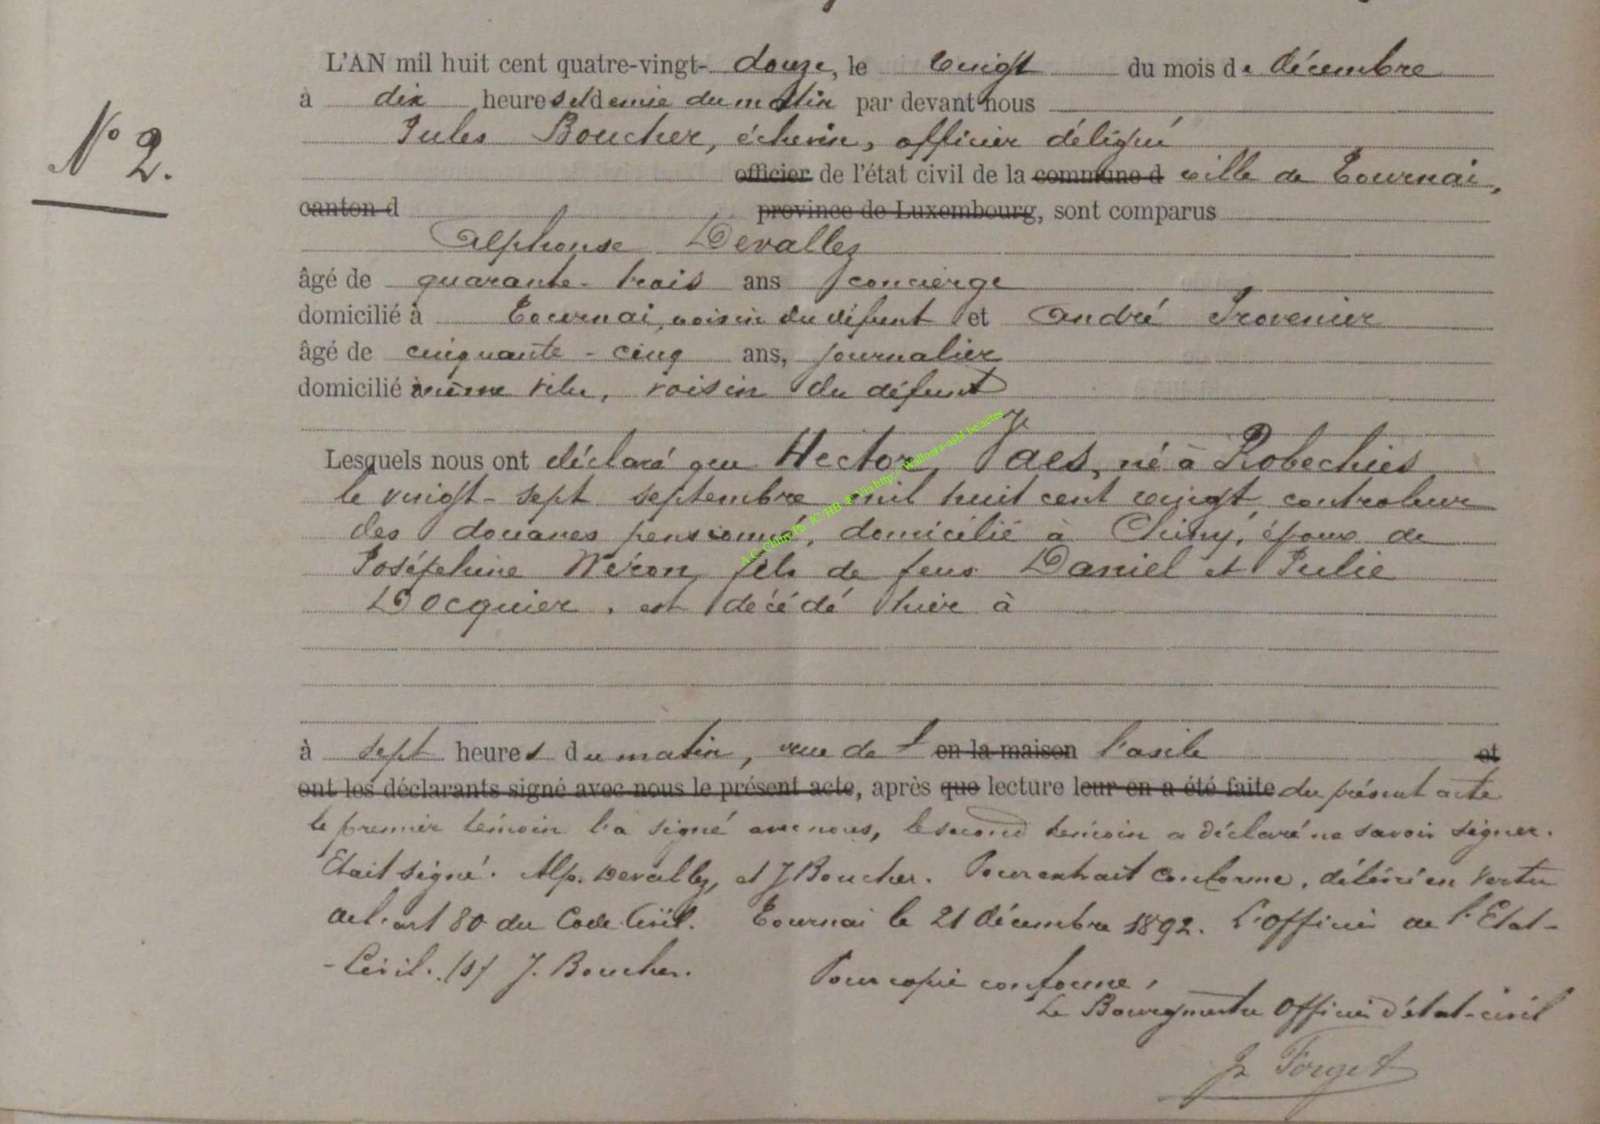 L'AN mil huit cent quatre-vingt- douze, le vingt du mois de décembre
à dix heures et demie du matin par devant nous
N° 2.
Jules Boucher, échevin, officier délégué
officier de l'état civil de la commune d ville de Tournai,
canton d province de Luxembourg, sont comparus
Alphonse Devallez
âgé de quarante-trois ans concierge
domicilié à Tournai, voisin du défunt et André Provenier
âgé de cinquante-cinq ans, journalier
domicilié à même ville, voisin du défunt
Lesquels nous ont déclaré que Hector Jaes, né à Robechies
le vingt-sept septembre mil huit cent vingt, controleur
des douanes pensionné, domicilié à Chiny, époux de
Joséphine Méron, fils de feus Daniel et Julie
Docquier, est décédé hier à
à sept heures du matin, rue de l' en la maison l'asile et
ont les déclarants signé avec nous le présent acte, après que lecture leur en a été faite du présent acte
le premier témoin l'a signé avec nous, le second témoin a déclaré ne savoir signer.
Etait signé. Alp. Devallez, et J Boucher. Pour extrait conforme, délivré en vertu
de l'art 80 du Code Civil. Tournai le 21 décembre 1892. L'Officier de l'Etat-
-Civil. (s) J. Boucher. Pour copie conforme,
Le Bourgmestre Officier d'état-civil
J Forget